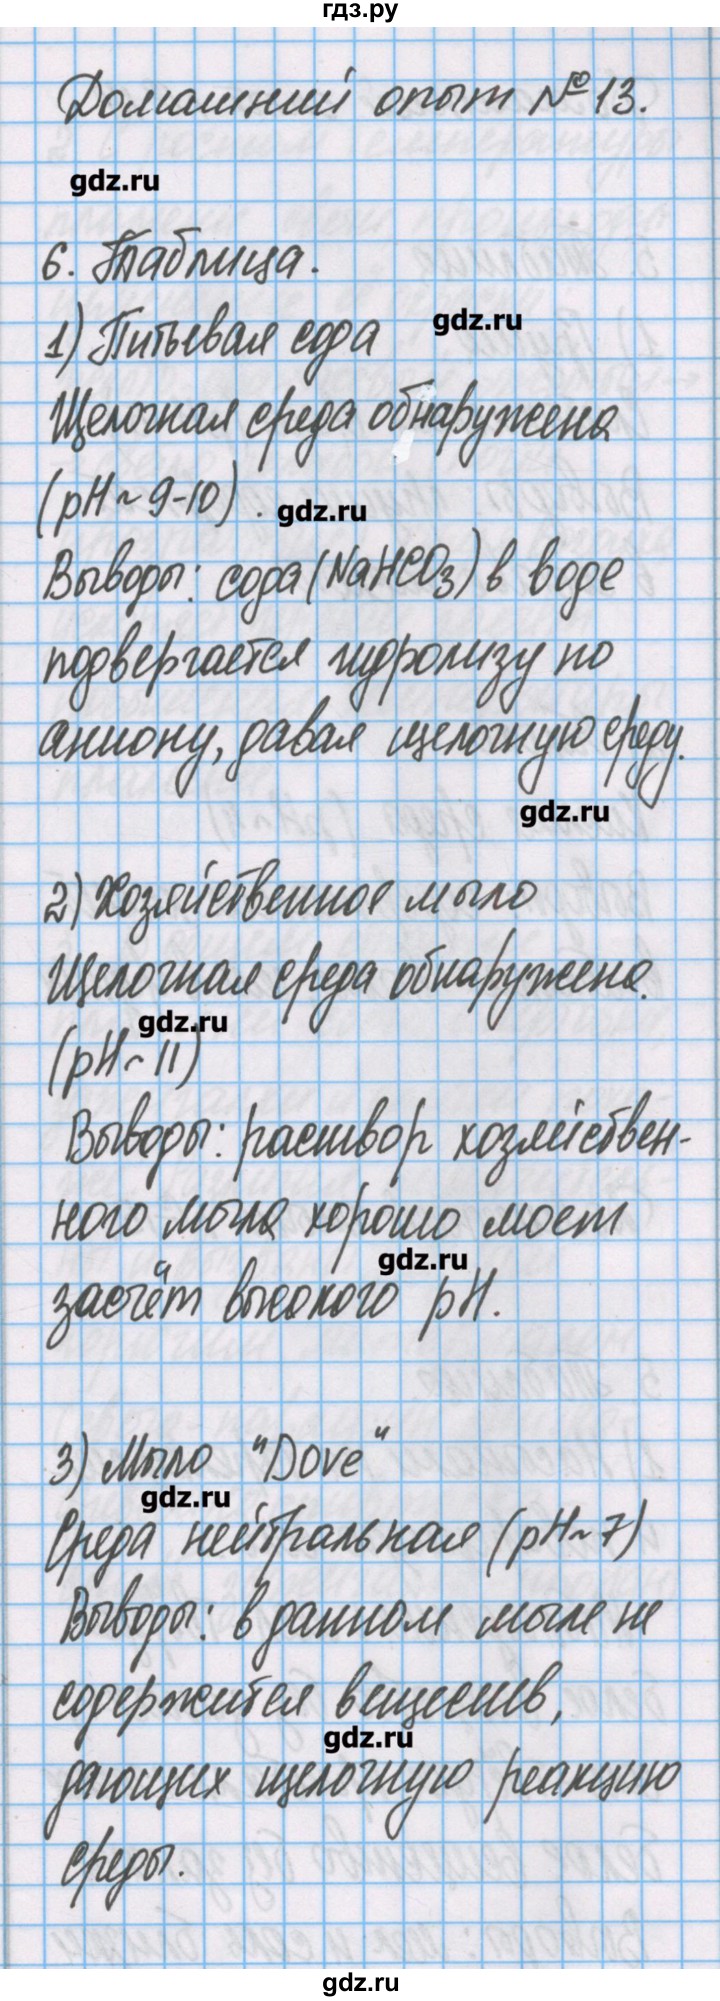 гдз.ру
Домашний опыт №13.
gdz.ru
6. Таблица.
1) Питьевая сода
gdz.ru
Щелочная среда обнаружена
(pH ~ 9-10).
gdz.ru
Выводы: сода (NaHCO₃) в воде
подвергается гидролизу по
аниону, давая щелочную среду.
gdz.ru
2) Хозяйственное мыло
Щелочная среда обнаружена.
gdz.ru
(pH ~ 11)
Выводы: раствор хозяйствен-
ного мыла хорошо моет
gdz.ru
засчёт высокого pH.
3) Мыло "Dove"
gdz.ru
Среда нейтральная (pH ~ 7)
Выводы: в данном мыле не
содержится веществ,
gdz.ru
дающих щелочную реакцию
среды.
gdz.ru